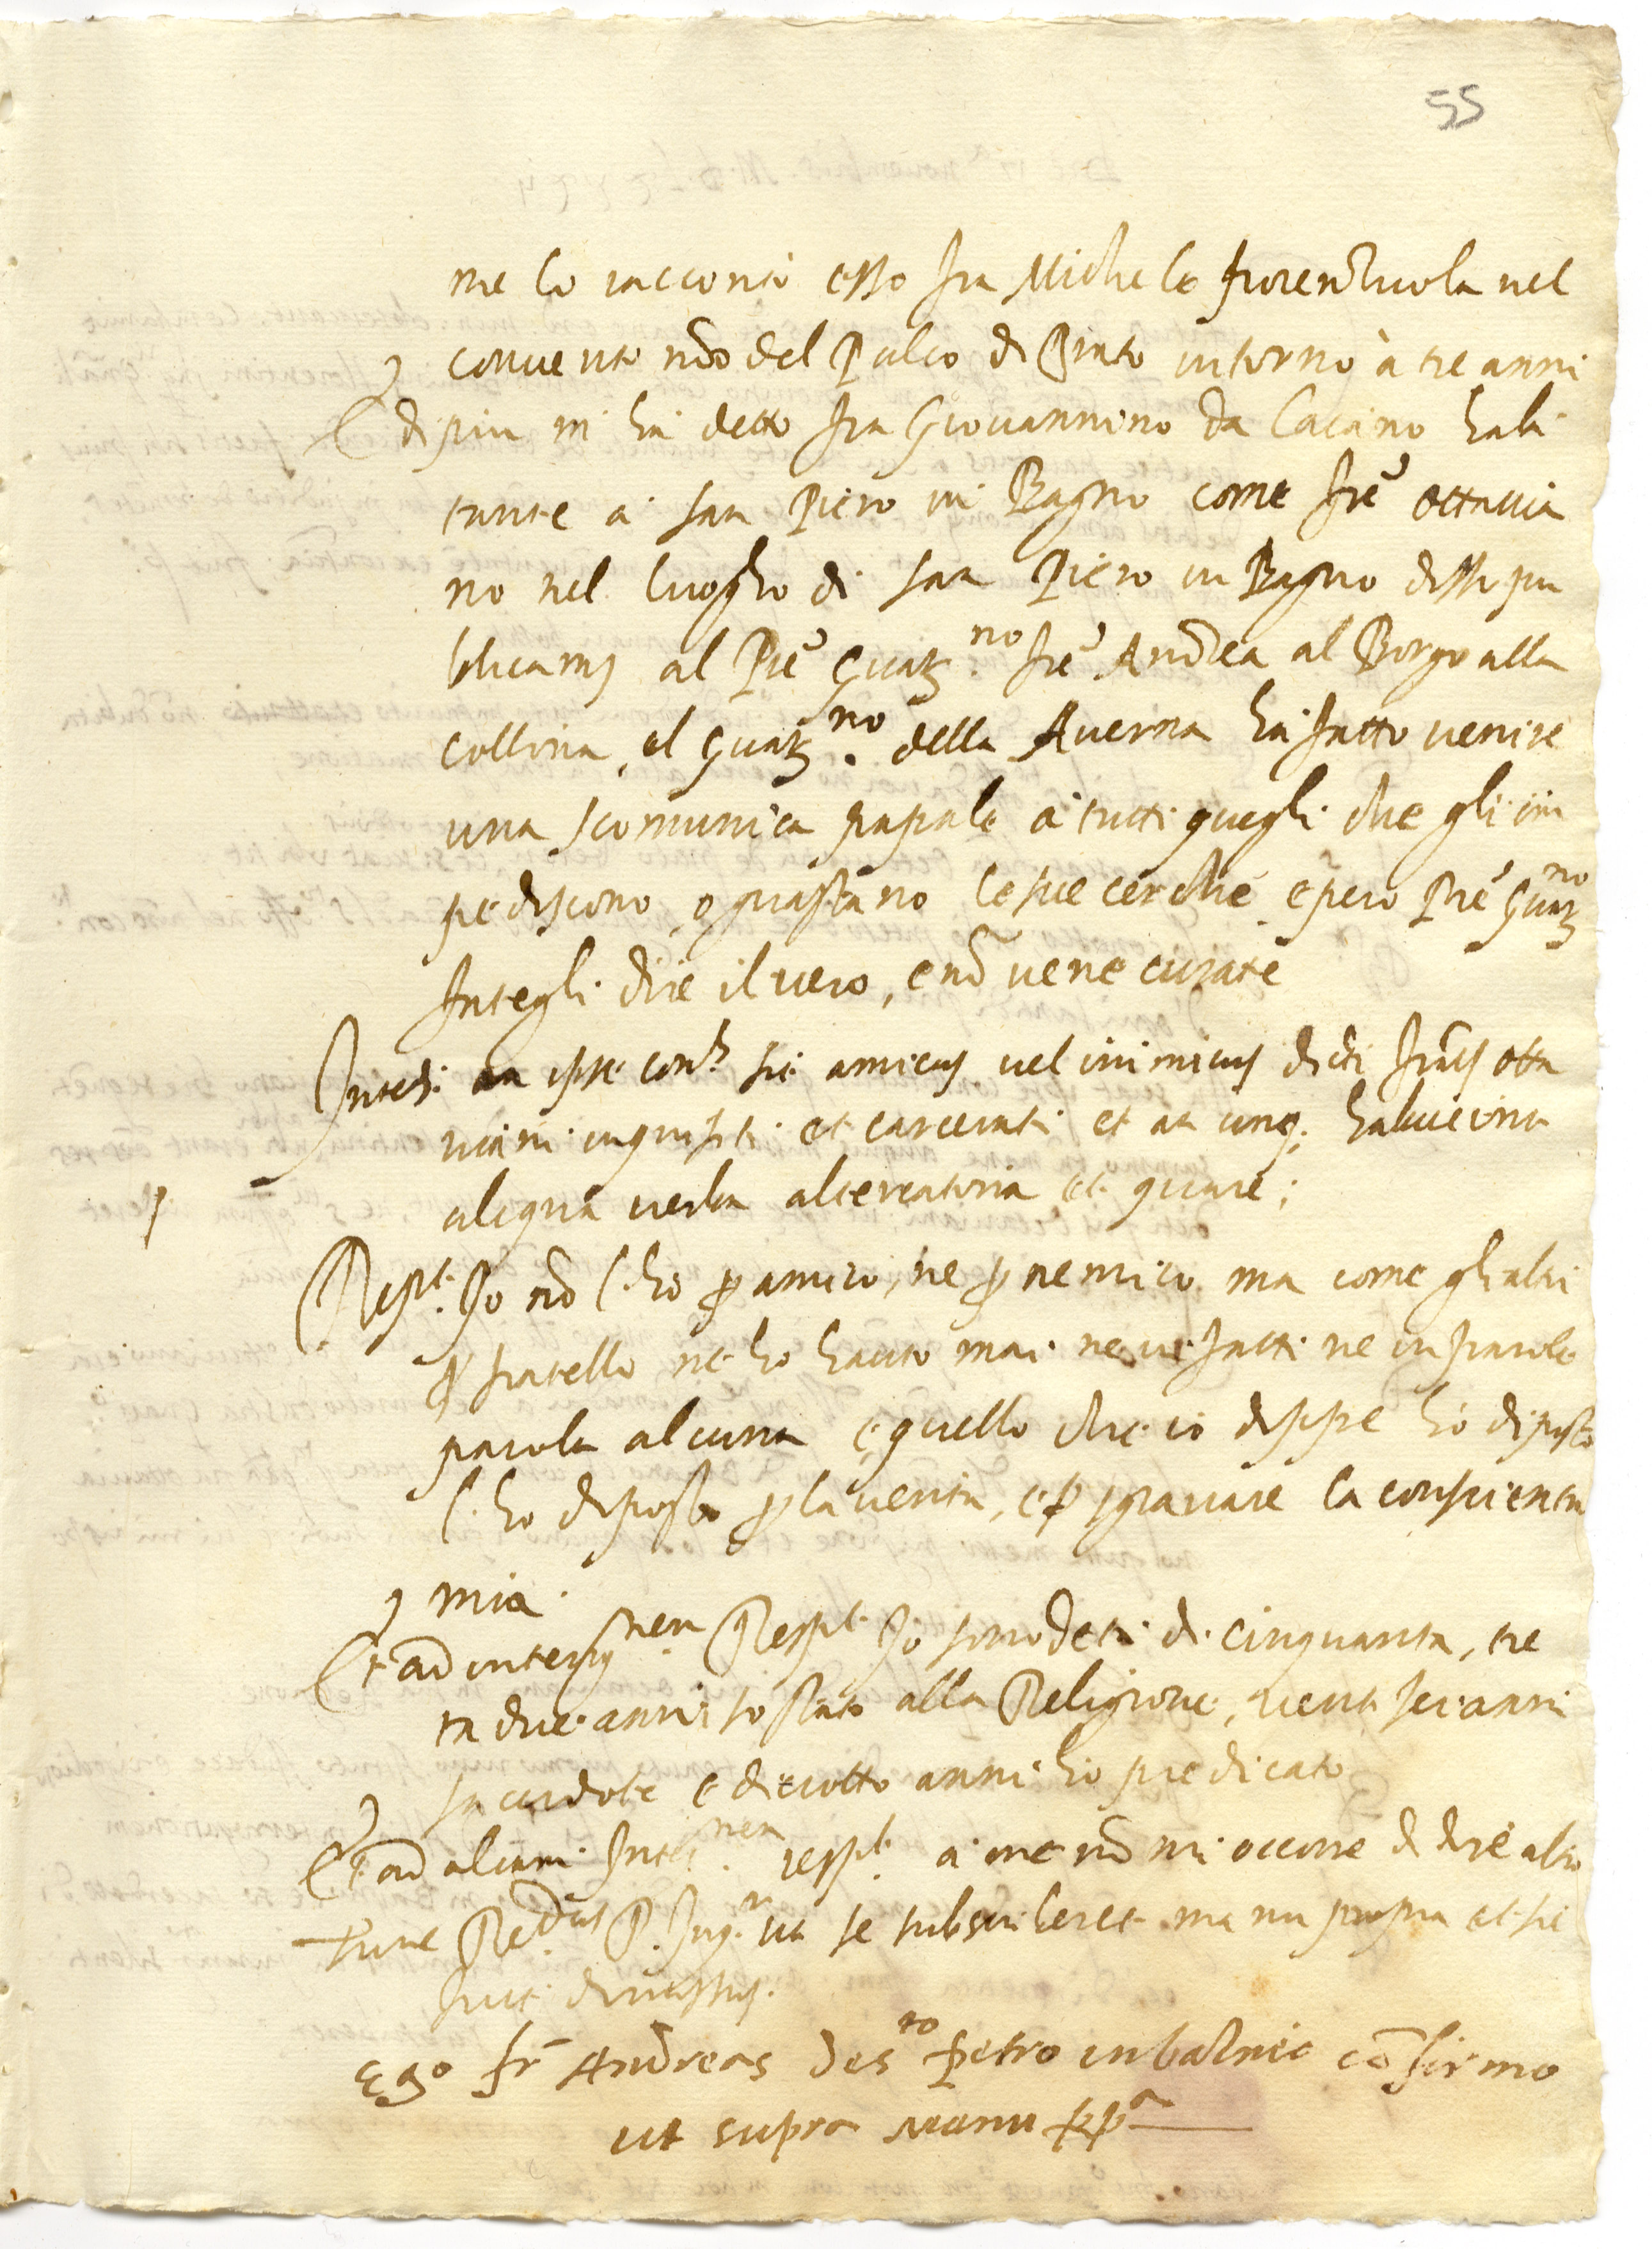 55
me lo racconto esso fra Michele fiorenzuola nel
convento nõ del Palco di Prato intorno à tre anni
E di piu m ha detto fra Giovannino da Caiano habi
tante a san Piero in Bagno come fre ottavia
no nel luogho di san Piero in Bagno disse pu
blicamẽ al Pre Guar.no fre Andrea al Borgo alla
collina, el Guar.no della Averna ha fatto venire
una scomunica papale a tutti quegli che gli im
pediscono, o guastano le sue cerche e pero Pre Guarno
fategli dire il vero, e nõ ve ne curate
Inter: an ipse con.s sit amicus vel inimicus dicti fratris otta
viani inquisiti et carcerati et an unq; habuerint
aliqua verba altercatoria et quare;
Respt. Io nõ l'ho p amico, ne p nemico ma come gli altri
p fratello ne ho hauto mai ne in fatti ne in parole
parola alcuna e quello che io dissi ho diposto
l'ho diposto p la verita, e p sgravare la conscientia
mia.
Et ad interrog.nem Respt. Io sono deta di cinquanta, tre
ta due anni so stato alla Religione, venti sei anni
sacerdote e dicotto anni ho predicato
Et ad aliam Inter.nem respt. a me nõ mi occorre di dire altro
tunc Re.dus P. Inq.r ut se subscriberet manu propria et sic
fuit dimissus.
Ego fr Andreas de s.to petro in balneo cõfirmo
ut supra manu ppa